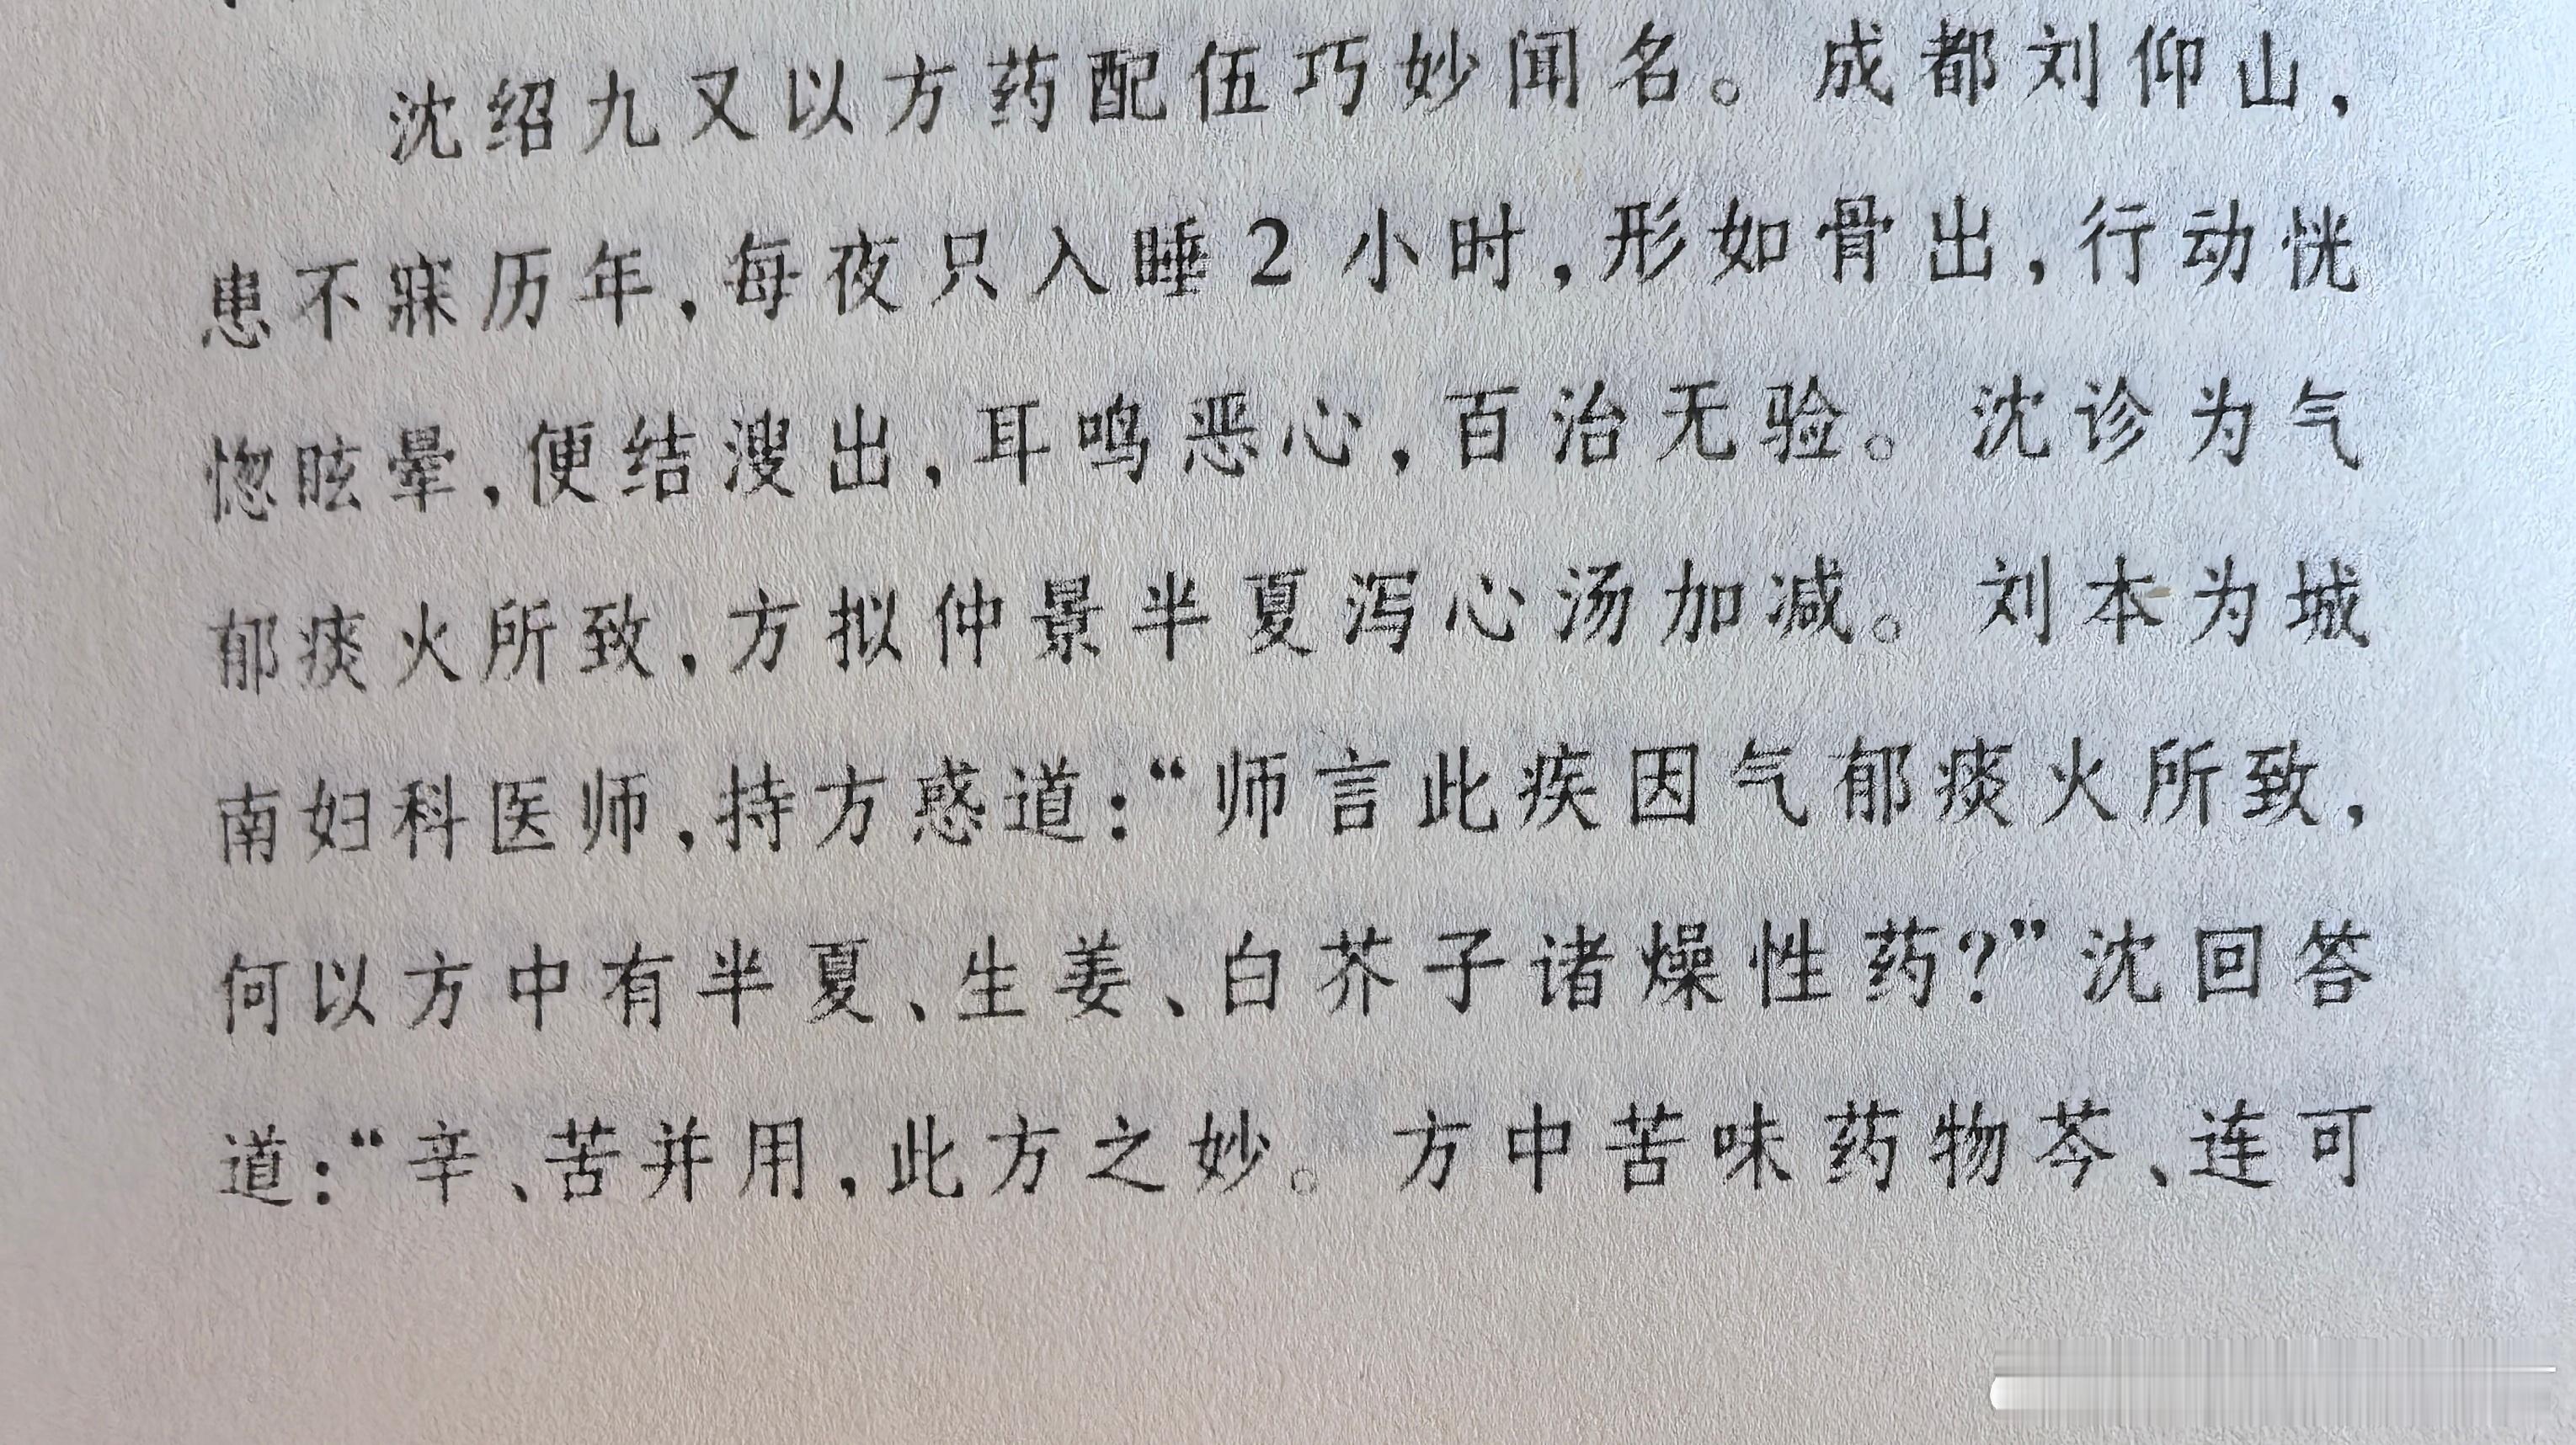 沈绍九又以方药配伍巧妙闻名。成都刘仰山，
患不寐历年，每夜只入睡2小时，形如骨出，行动恍
惚眩晕，便结溲出，耳鸣恶心，百治无验。沈诊为气
郁痰火所致，方拟仲景半夏泻心汤加减。刘本为城
南妇科医师，持方惑道：“师言此疾因气郁痰火所致，
何以方中有半夏、生姜、白芥子诸燥性药？”沈回答
道：“辛、苦并用，此方之妙。方中苦味药物芩、连可